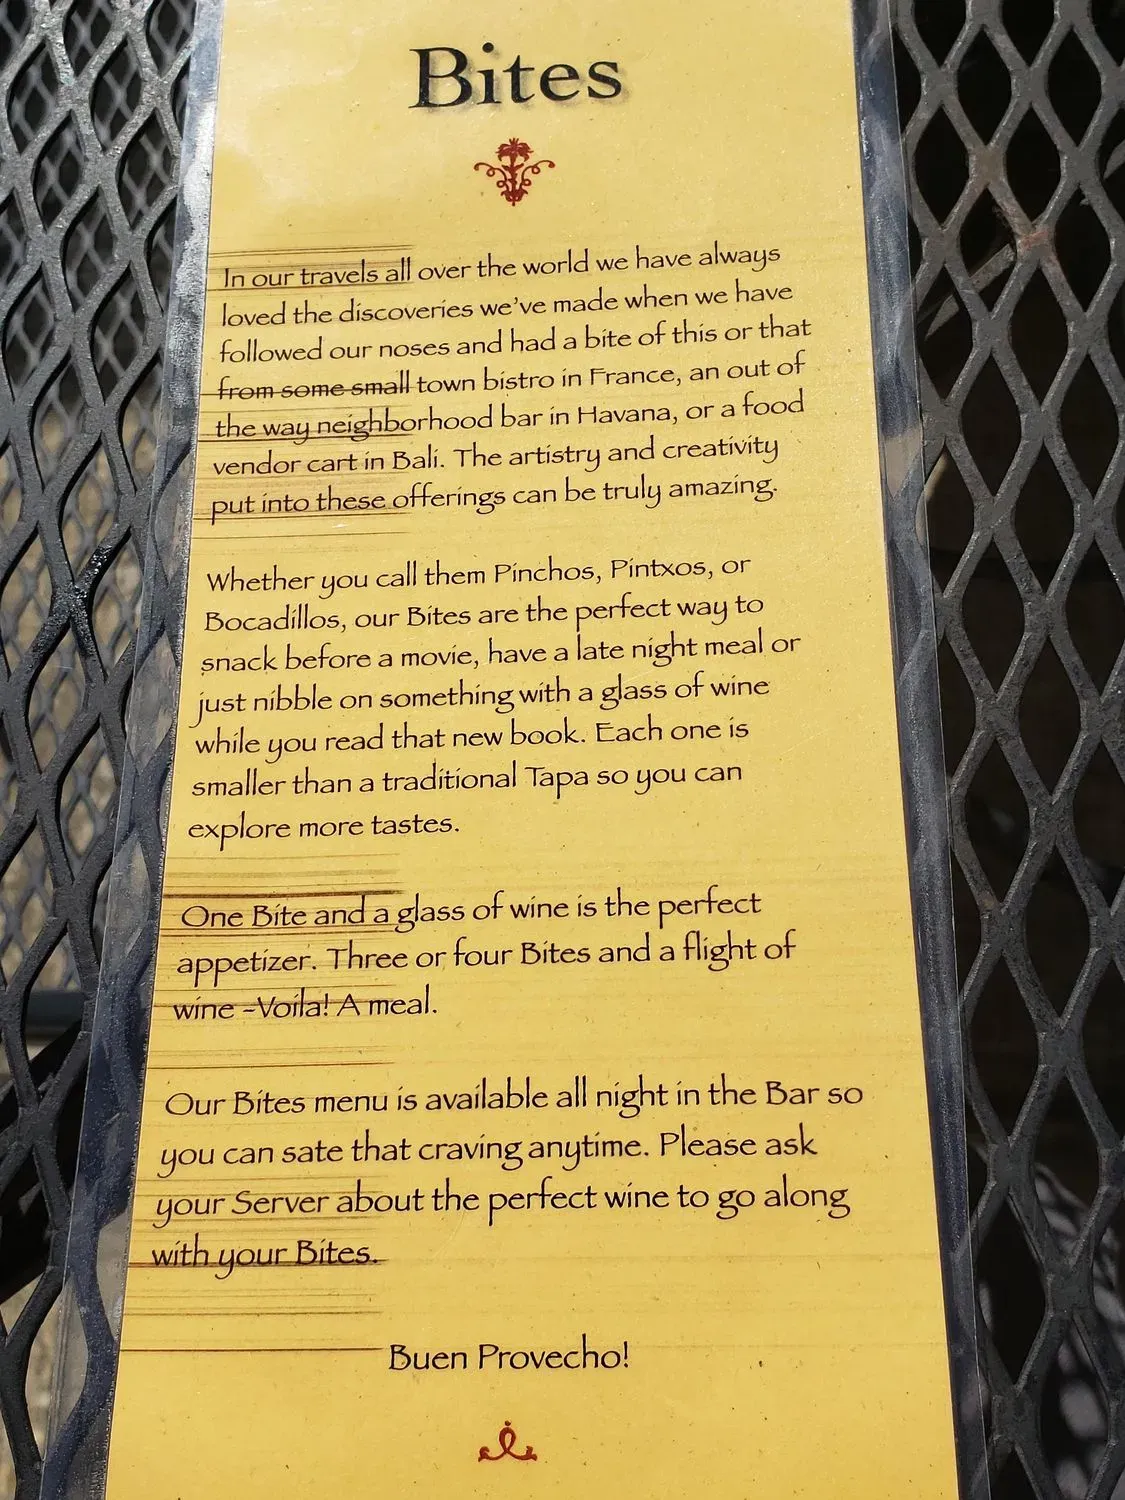 Bites
In our travels all over the world we have always
loved the discoveries we've made when we have
followed our noses and had a bite of this or that
from some small town bistro in France, an out of
the way neighborhood bar in Havana, or a food
vendor cart in Bali. The artistry and creativity
put into these offerings can be truly amazing.
Whether you call them Pinchos, Pintxos, or
Bocadillos, our Bites are the perfect way to
snack before a movie, have a late night meal or
just nibble on something with a glass of wine
while you read that new book. Each one is
smaller than a traditional Tapa so you can
explore more tastes.
One Bite and a glass of wine is the perfect
appetizer. Three or four Bites and a flight of
wine -Voila! A meal.
Our Bites menu is available all night in the Bar so
you can sate that craving anytime. Please ask
your Server about the perfect wine to go along
with your Bites.
Buen Provecho!